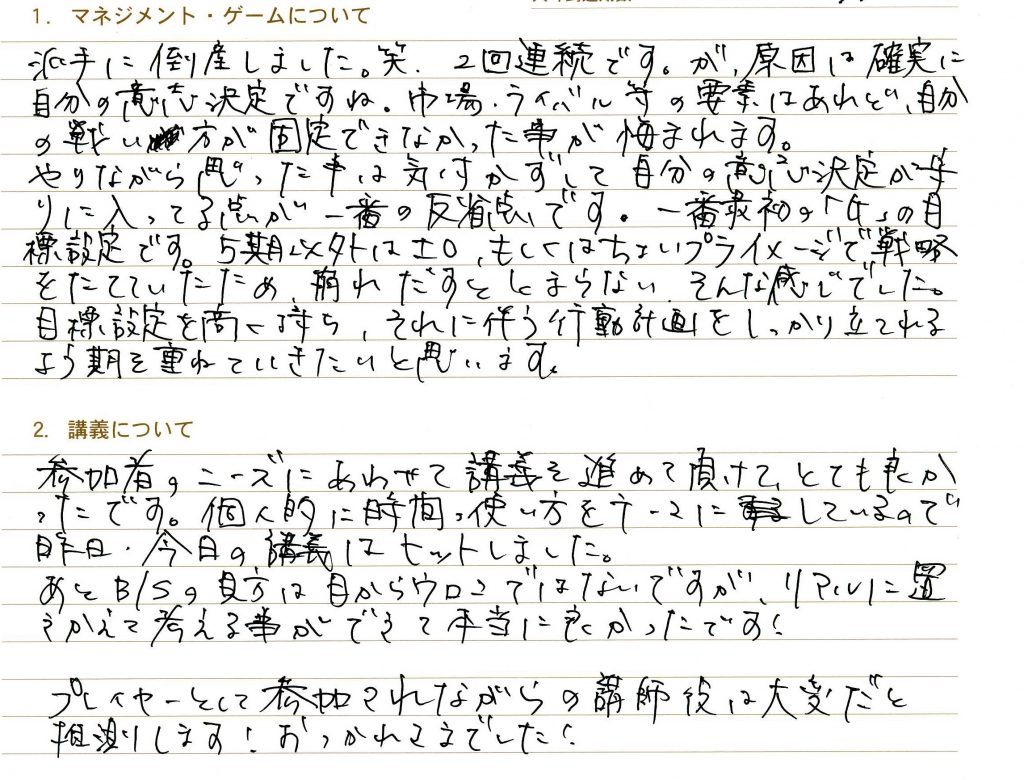 1. マネジメント・ゲームについて
派手に倒産しました。笑. 2回連続です。が、原因は確実に
自分の意志決定ですね。市場・ライバル等の要素はあれど、自分
の戦い方が固定できなかった事が悔まれます。
やりながら思った事は気付かずして自分の意志決定が守
りに入ってる点が一番の反省点です。一番最初の「4」の目
標設定です。5期以外は±0、もしくはちょいプライメージで戦略
をたてていたため、崩れだすととまらない、そんな感じでした。
目標設定を高く持ち、それに伴う行動計画をしっかり立てれる
よう期を重ねていきたいと思います。
2. 講義について
参加者のニーズにあわせて講義を進めて頂けて、とても良か
ったです。個人的に時間の使い方をテーマにしているので
昨日・今日の講義はヒットしました。
あとB/Sの見方は目からウロコではないですが、リアルに置
きかえて考える事ができて本当に良かったです!
プレイヤーとして参加されながらの講師役は大変だと
推測します!おつかれさまでした!